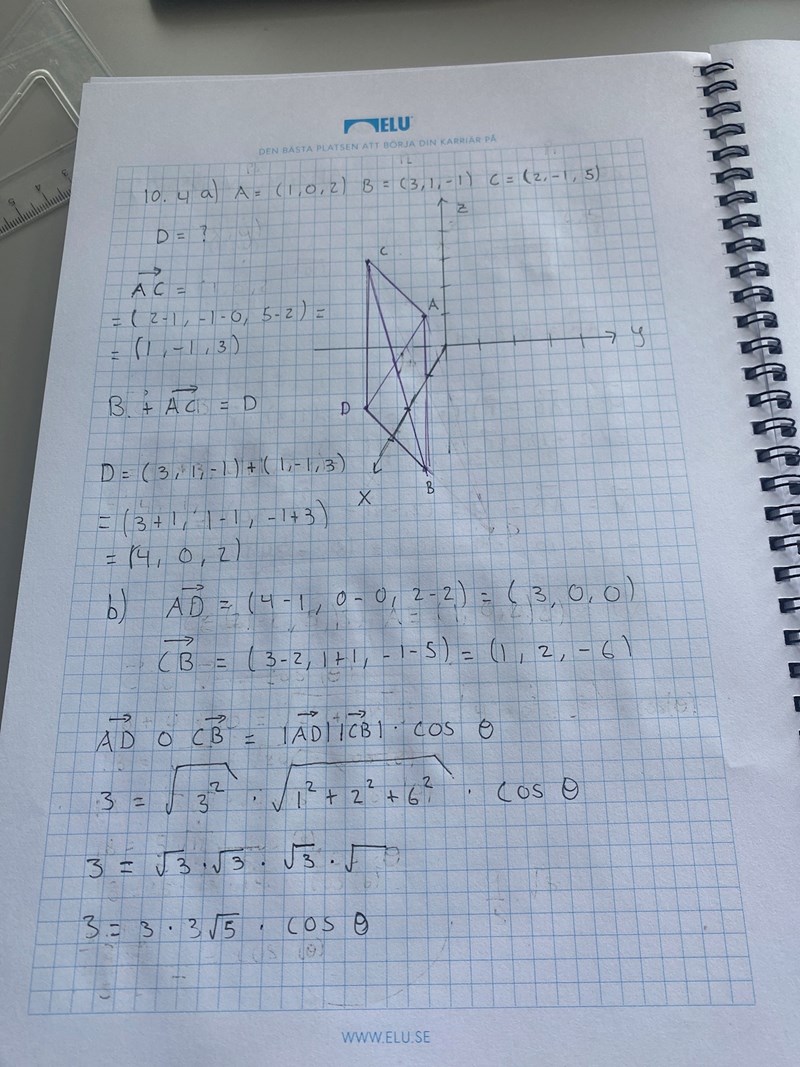 ELU
DEN BÄSTA PLATSEN ATT BÖRJA DIN KARRIÄR PÅ
10.4 a) A = (1,0,2) B = (3,1,-1) C = (2,-1,5)
D = ?
AC⃗ =
= (2-1, -1-0, 5-2) =
= (1, -1, 3)
B + AC⃗ = D
D = (3, 1, -1) + (1, -1, 3)
= (3+1, 1-1, -1+3)
= (4, 0, 2)
z
C
A
y
D
X
B
b) AD⃗ = (4-1, 0-0, 2-2) = (3, 0, 0)
CB⃗ = (3-2, 1+1, -1-5) = (1, 2, -6)
AD⃗ o CB⃗ = |AD⃗| |CB⃗| · cos θ
3 = √3² · √1² + 2² + 6² · cos θ
3 = √3 · √3 · √3 · √
3 = 3 · 3√5 · cos θ
WWW.ELU.SE
5 4 3